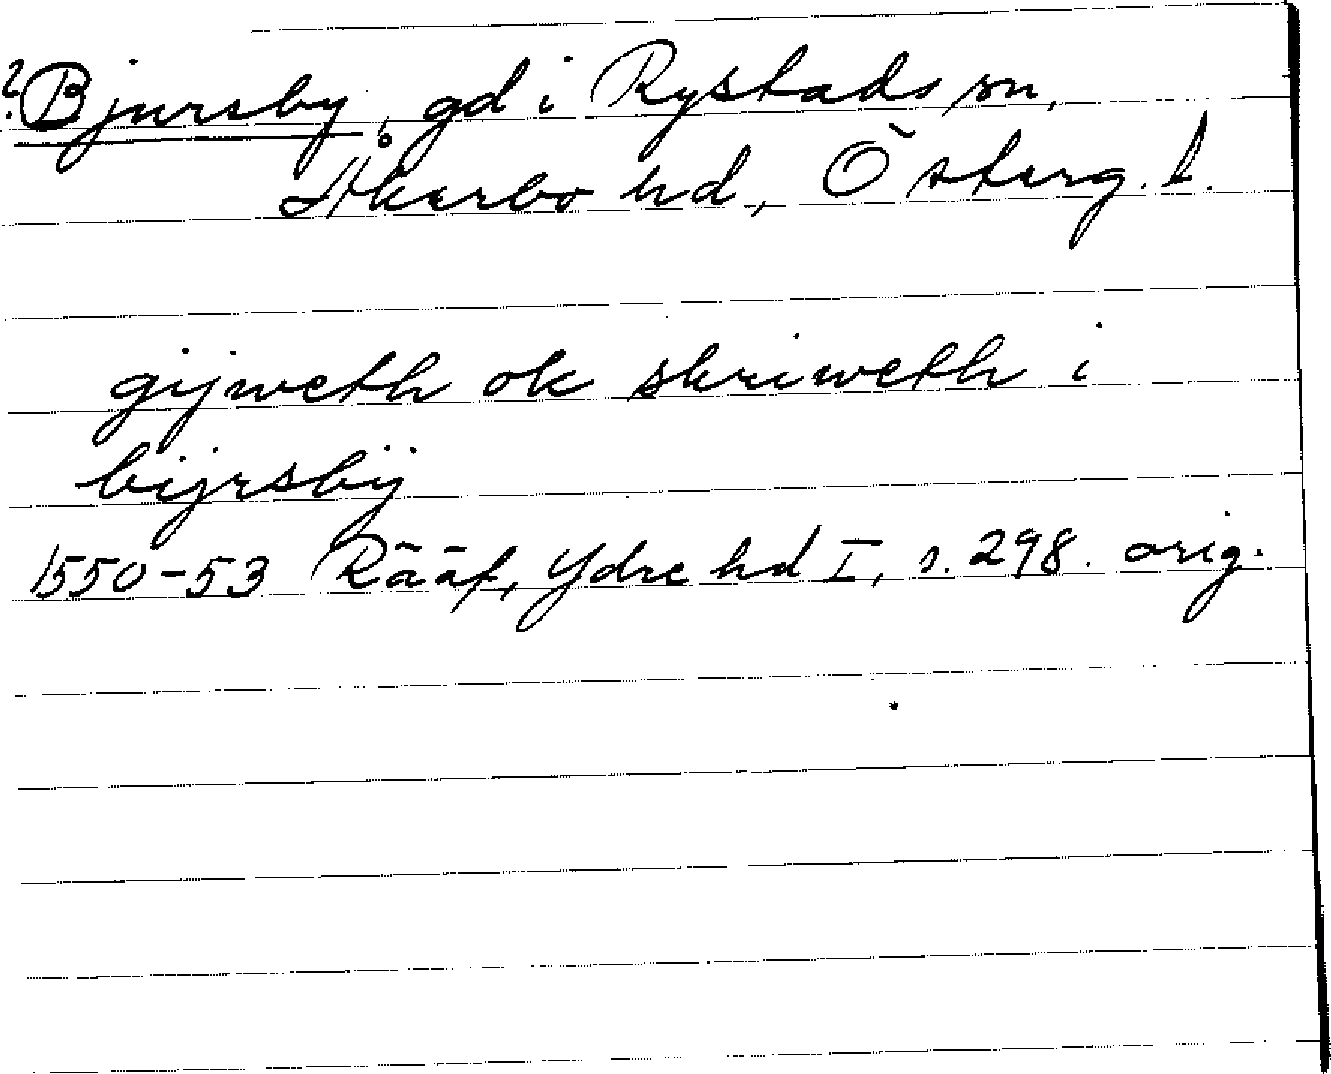 ? Bjursby, gd i Rystads sn,
Åkerbo hd, Österg. l.
gijweth ok skriweth i
bijrsbij
1550-53 Rääf, Ydre hd I, s. 298. orig.